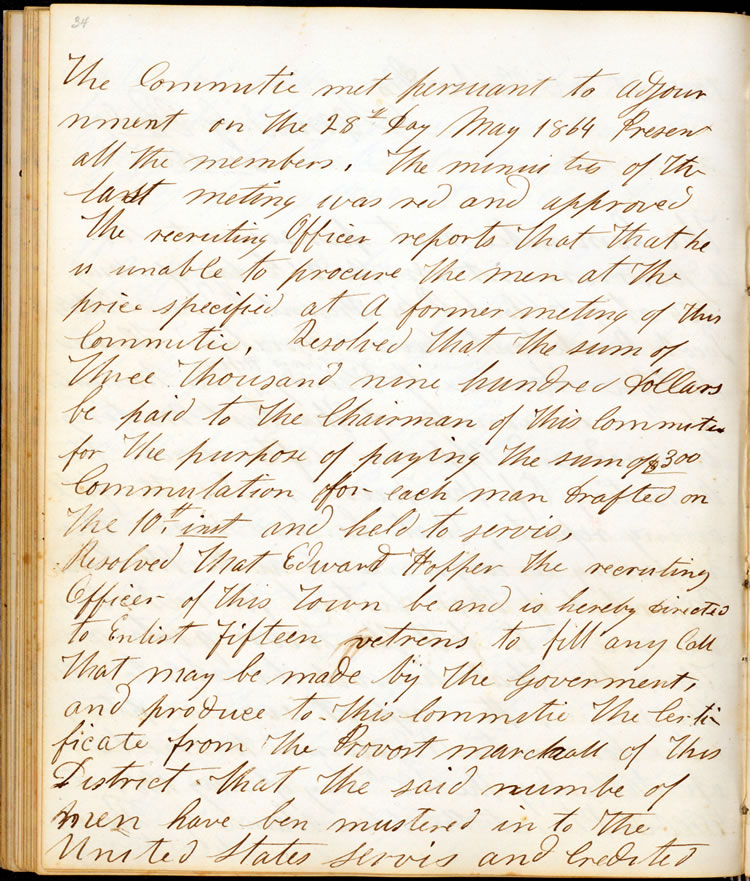 34
The Committie met persuant to adjour
nment on the 28th Day May 1864 Presen
all the members. The minuties of the
last meting was red and approved
The recruting Officer reports that that he
is unable to procure the men at the
price specified at A former meting of this
Committie. Resolved that the sum of
Three Thousand nine hundred dollars
be paid to the Chairman of this Committee
for the purpose of paying the sum of $300
Commutation for each man drafted on
the 10th inst and held to servis,
Resolved that Edward Hopper the recruting
Officer of this Town be and is hereby directed
to Enlist fifteen vetrens to fill any Call
that may be made by the Goverment,
and produce to this Committie the Certi-
ficate from the Provost marchall of this
District that the said numbe of
men have ben mustered in to the
United States servis and Credited